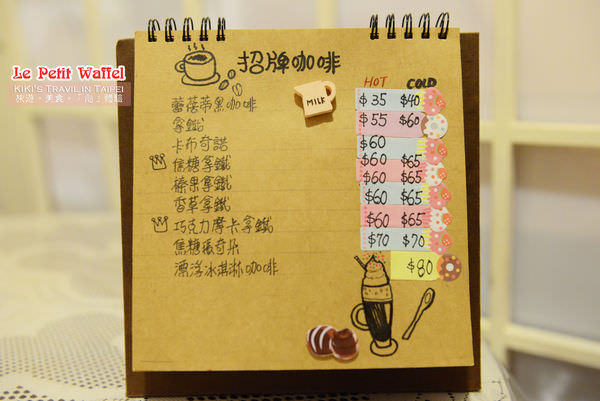 Le Petit Waffel
KIKI's TRAVIL IN TAIPEI
旅遊。美食。「泡」體驗
招牌咖啡
HOT COLD
MILK
蕾蓓蒂黑咖啡 $35 $40
拿鐵 $55 $60
卡布奇諾 $60
焦糖拿鐵 $60 $65
榛果拿鐵 $60 $65
香草拿鐵 $60 $65
巧克力摩卡拿鐵 $60 $65
焦糖瑪奇朵 $70 $70
漂浮冰淇淋咖啡 $80